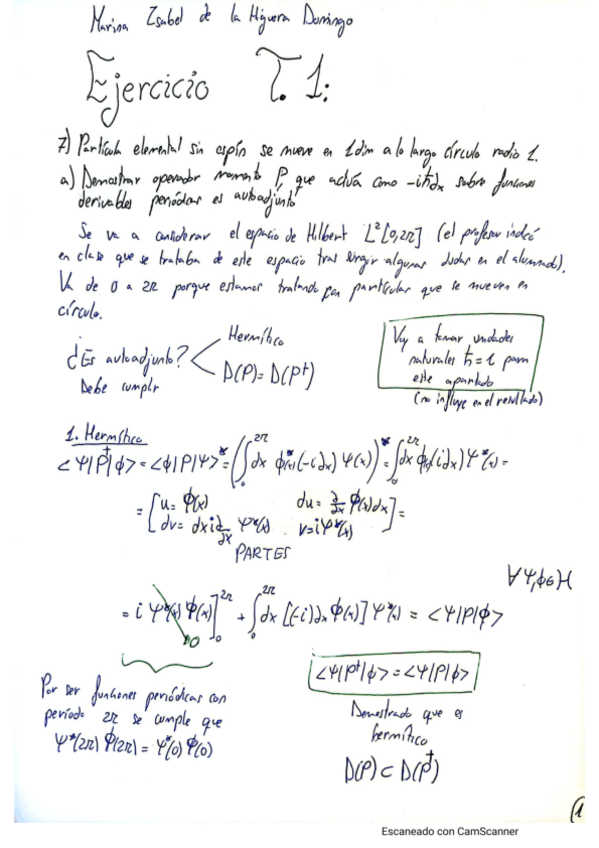 Marina Isabel de la Higuera Domingo
Ejercicio T.1:
7) Partícula elemental sin espín se mueve en 1 dim a lo largo círculo radio 1.
a) Demostrar operador momento P, que actúa como -iħ∂x sobre funciones
derivables periódicas es autoadjunto
Se va a considerar el espacio de Hilbert L²[0,2π] (el profesor indicó
en clase que se trataba de este espacio tras surgir algunas dudas en el alumnado).
Va de 0 a 2π porque estamos tratando con partículas que se mueven en
círculo.
¿Es autoadjunto?
Debe cumplir
Hermítico
D(P)=D(P†)
Voy a tomar unidades
naturales ħ=1 para
este apartado
(no influye en el resultado)
1. Hermítico
<Ψ|P†|φ> = <φ|P|Ψ>* = (∫₀^2π dx φ*(x)(-i∂x)Ψ(x))* = ∫₀^2π dx φ(x)(i∂x)Ψ*(x) =
= [u= φ(x) du= ∂/∂x φ(x)dx
dv= dx i ∂/∂x Ψ*(x) v=iΨ*(x)] =
PARTES
∀Ψ,φ∈H
= iΨ*(x)φ(x)]₀^2π + ∫₀^2π dx [(-i)∂xφ(x)]Ψ*(x) = <Ψ|P|φ>
0
Por ser funciones periódicas con
período 2π se cumple que
Ψ*(2π)φ(2π)=Ψ*(0)φ(0)
<Ψ|P†|φ>=<Ψ|P|φ>
Demostrado que es
hermítico
D(P)⊂D(P†)
1
Escaneado con CamScanner